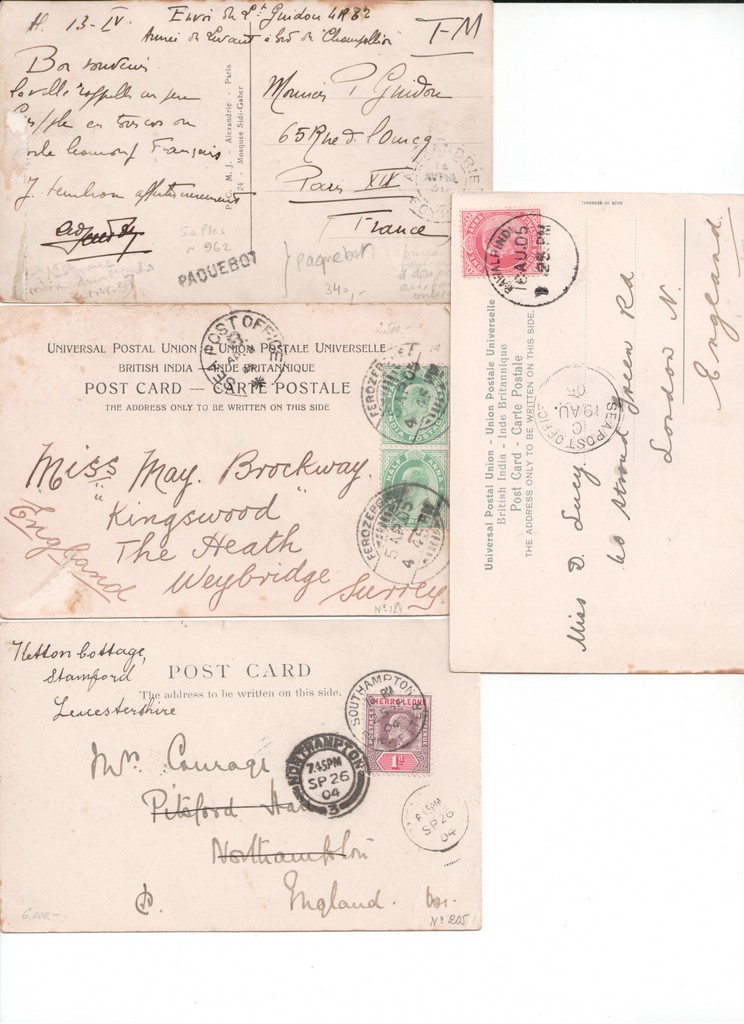 A. 13-IV. Envoi du Lt Guidon
Armée du Levant à bord du "Champollion"
T-M
Bon souvenir
français
Monsieur P Guidon
65 Rue de l'Ourcq
Paris XIX
France
P.O.C. M. J. - Alexandrie - Paris
24 - Mosquée Sidi-Gaber
ALEXANDRIE
AVRIL
PAQUEBOT
paquebot
340,-
n 962
UNIVERSAL POSTAL UNION - UNION POSTALE UNIVERSELLE
BRITISH INDIA - INDE BRITANNIQUE
POST CARD - CARTE POSTALE
THE ADDRESS ONLY TO BE WRITTEN ON THIS SIDE
SEA POST OFFICE
2.500-
FEROZEPORE
HALF ANNA
INDIA POSTAGE
FEROZEPORE
5 AP 05
HALF ANNA
Miss May. Brockway.
"Kingswood"
The Heath
Weybridge Surrey.
England
No 184
MADE IN GERMANY.
ONE ANNA
RAWALPINDI
16 AU. 05
Universal Postal Union - Union Postale Universelle
British India - Inde Britannique
Post Card - Carte Postale
THE ADDRESS ONLY TO BE WRITTEN ON THIS SIDE.
SEA POST OFFICE
C
19 AU.
05
Miss D. Lucy.
60 Stroud Green Rd
London N.
England
Ketton Cottage,
Stamford
Leicestershire
POST CARD
The address to be written on this side.
SOUTHAMPTON
04
SIERRA LEONE
1d
NORTHAMPTON
7.45PM
SP 26
04
3
SP 26
04
Mrs Courage
Pitsford Hall
Northampton
England.
6,000.-
No 205